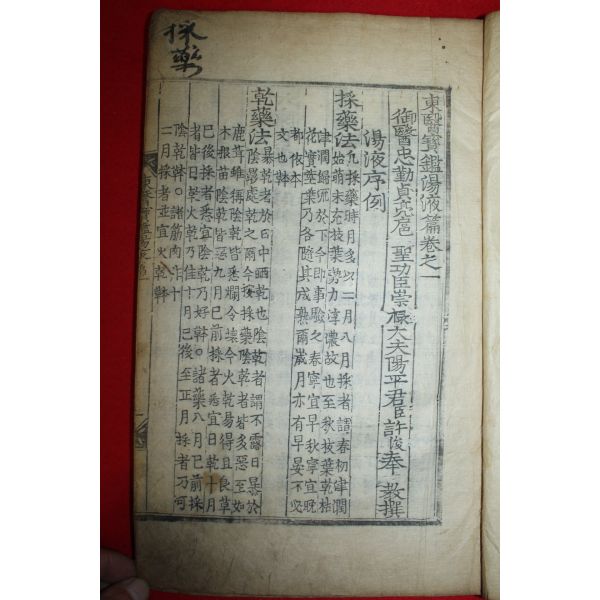 採藥
東醫寶鑑湯液篇卷之一
御醫忠勤貞亮扈 聖功臣崇祿大夫陽平君臣許浚奉 教撰
湯液序例
採藥法凡採藥時月多以二月八月採者謂春初津潤
始萌未充枝葉勢力淳濃故也至秋枝葉乾枯
津潤歸流於下今卽事驗之春寧宜早秋寧宜晚
花實莖葉乃各隨其成熟爾歲月亦有早晏不必
都依本
文也本草
乾藥法暴乾者於日中晒乾也陰乾者謂不露日暴於
陰影處乾之爾今按採藥陰乾者皆多惡至如
鹿茸雖稱陰乾皆悉爛令壞今火乾易得且良草
木根苗陰乾皆惡九月已前採者悉宜日乾十月
已後採者悉宜陰乾乃好本草○諸藥八月已前採
者皆日乾火乾乃佳十月已後至正月採者乃可
陰乾本草○諸筋肉非十
二月採者並宜火乾本草